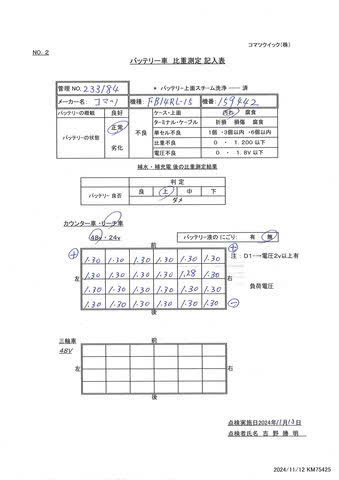 コマツクイック(株)
NO. 2
バッテリー車 比重測定 記入表
管理NO. 233184 * バッテリー上面スチーム洗浄 ── 済
メーカー名: コマツ 機種: FB14RL-15 機番: 159442
バッテリーの種類 良好 不良 ケース・上面 汚れ 腐食
バッテリーの状態 正常 ターミナル・ケーブル 折損 損傷 腐食
単セル不良 1個 ・3個以内 ・6個以内
劣化 比重不良 0 ・ 1.200以下
電圧不良 0 ・ 1.8V以下
補水・補充電 後の比重測定結果
判定
バッテリー 良否 良 上 中 下
ダメ
カウンター車 ・ リーチ車
48v ・ 24v バッテリー液のにごり: 有 無
前
+ 1.30 1.30 1.30 1.30 1.30 1.30 + 注 : D1-→電圧2v以上有
左 1.30 1.30 1.30 1.30 1.28 1.30 右
1.30 1.30 1.30 1.30 1.30 1.30 負荷電圧
1.30 1.30 1.30 1.30 1.30 1.30 -
後
三輪車 前
48V
左 右
後
点検実施日2024年11月13日
点検者氏名 吉野 勝明
2024/11/12 KM75425